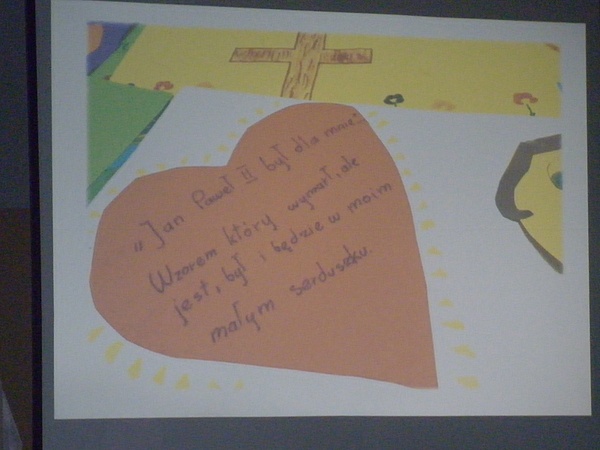 „Jan Paweł II był dla mnie:
Wzorem który wymarł, ale
jest, był i będzie w moim
małym serduszku.